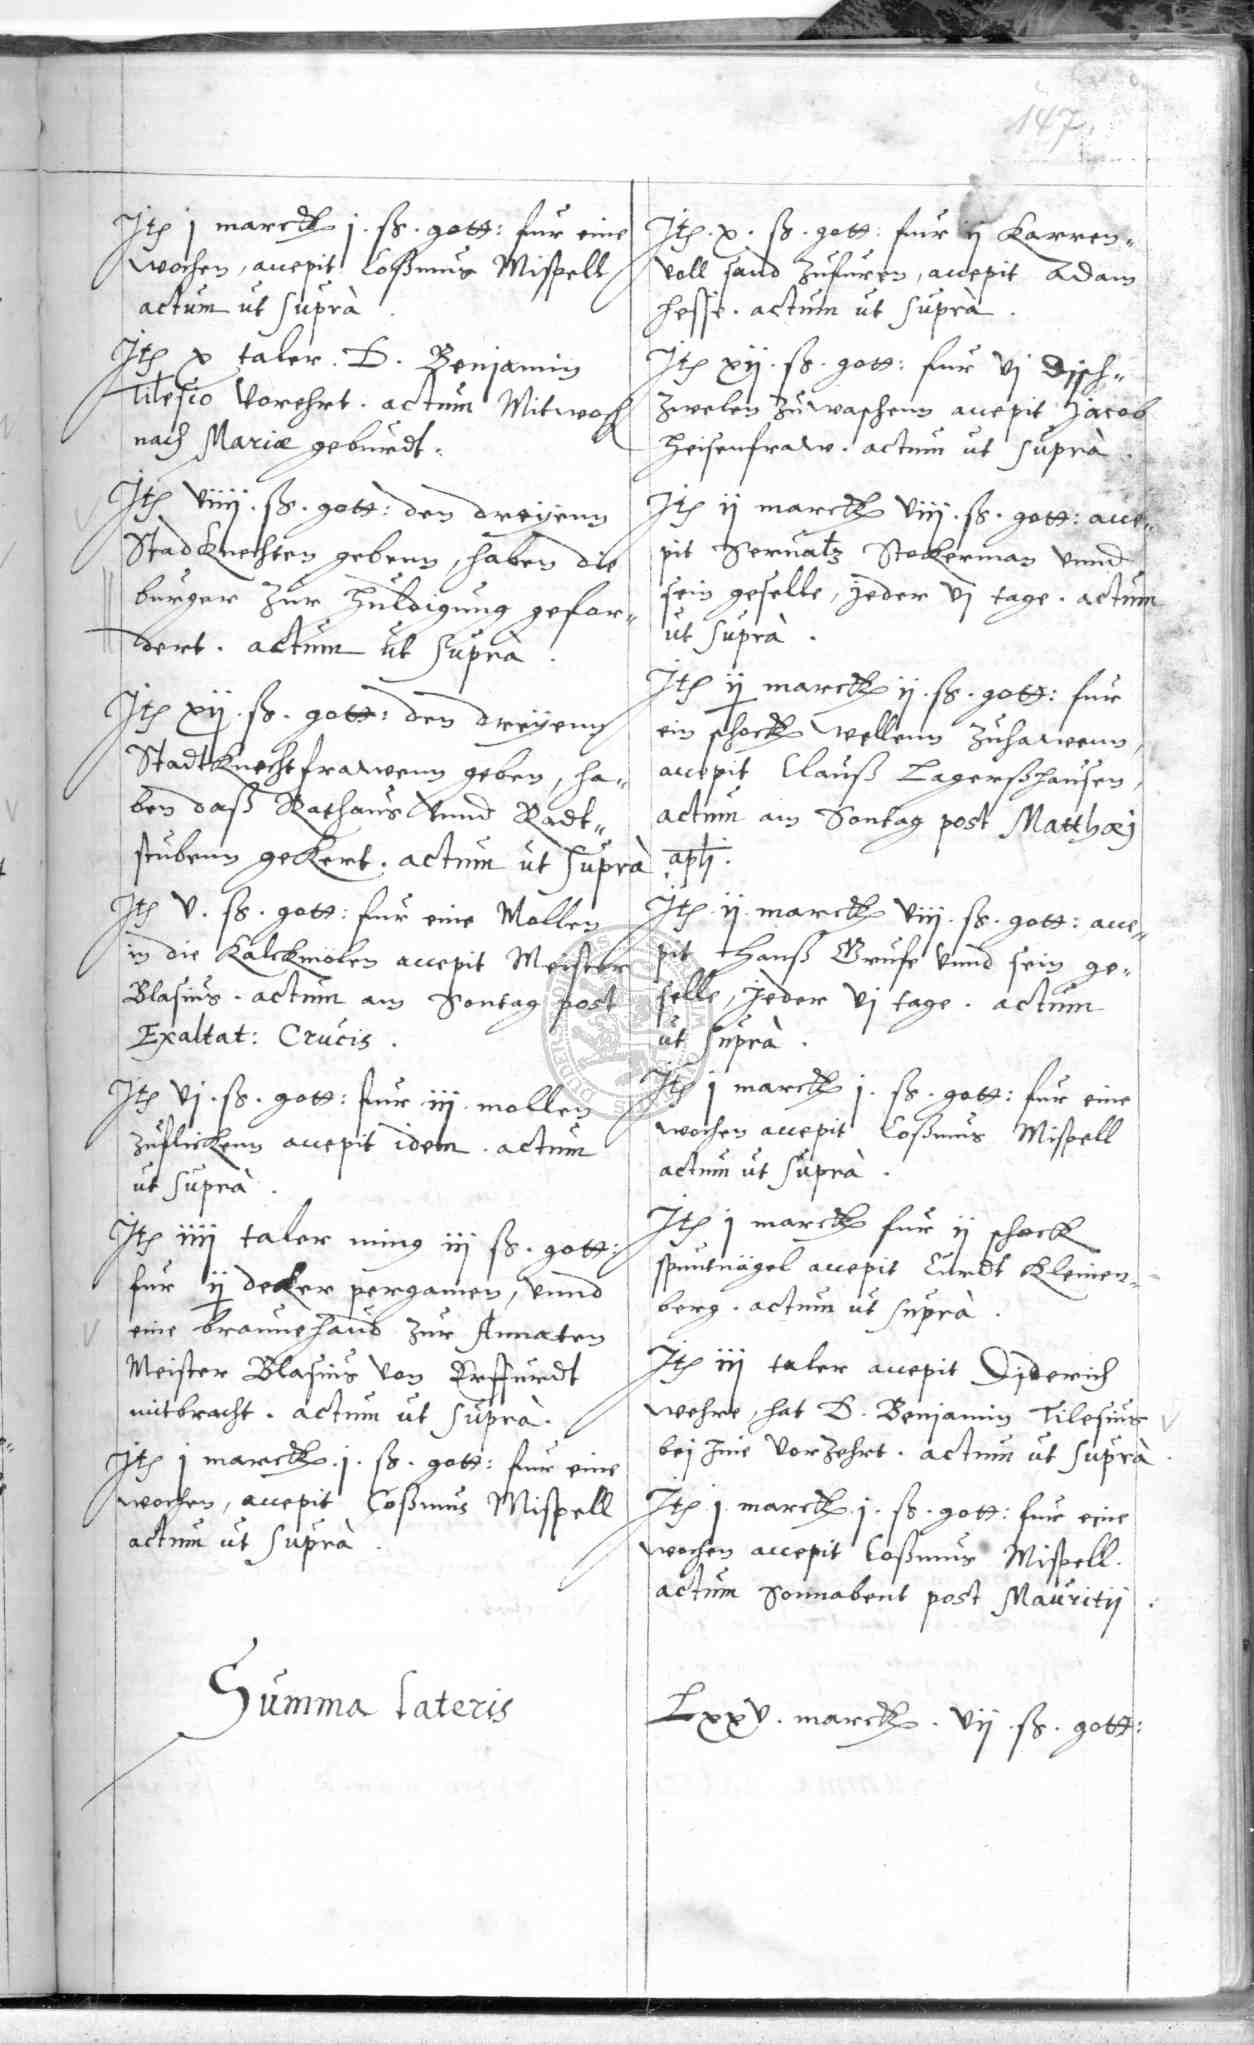 147
Jtē j marck j. ß. gott: fur eine
wochen, accepit Coßmus Mispell
actum ut suprà.
Jtē x taler. D. Benjamin
Tilesio vorehrt. actum Mitwoch
nach Mariæ geburdt.
Jtē viiij. ß. gott: den dreyenn
Stadknechten gebenn, haben die
burger zur huldigung gefor„
dert. actum ut suprà.
Jtē xij. ß. gott: den dreyenn
Stadtknechtfrawenn geben, ha„
ben daß Rathaus vnnd Radt„
stubenn gekert. actum ut suprà
Jtē v. ß. gott: fur eine Mollen
in die Kalckmölen accepit Meister
Blasius. actum am Sontag post
Exaltat: Crucis.
Jtē vj. ß. gott: fur iij mollen
zuflickenn accepit idem. actum
ut suprà.
Jtē iiij taler ming iij ß. gott:
fur ij decker pergamen, vnnd
eine braune haud zur Annaten
Meister Blasius von Erffurdt
mitbracht. actum ut suprà.
Jtē j marck j. ß. gott: fur eine
wochen, accepit Coßmus Mispell
actum ut suprà.
Summa lateris
Jtē. x. ß. gott: fur ij Karren„
voll sand zufuren, accepit Adam
Hesse. actum ut suprà.
Jtē xij. ß. gott: fur vj Disch„
zwelen zuwaschenn accepit Jacob
Heisenfraw. actum ut suprà.
Jtē ij marck viij. ß. gott: acce„
pit Servatz Stockerman vnnd
sein geselle, jeder vj tage. actum
ut suprà.
Jtē ij marck ij. ß. gott: fur
ein schock wellenn zuhawenn,
accepit Clauß Lagerßhausen,
actum am Sontag post Matthæj
apłi.
Jtē ij. marck viij. ß. gott: acce„
pit Hanß Grufe vnnd sein ge„
selle, jeder vj tage. actum
ut suprà.
Jtē j marck j. ß. gott: fur eine
wochen accepit Coßmus Mispell
actum ut suprà.
Jtē j marck fur ij schock
spuntnägel accepit Curdt Kleinen„
berg. actum ut suprà.
Jtē iij taler accepit Diderich
Wehre, hat D. Benjamin Tilesius
bej Jme vorzehrt. actum ut suprà.
Jtē j. marck. j. ß. gott: fur eine
wochen accepit Coßmus Mispell.
actum Sonnabent post Mauritij.
Lxxv. marck. vij. ß. gott: